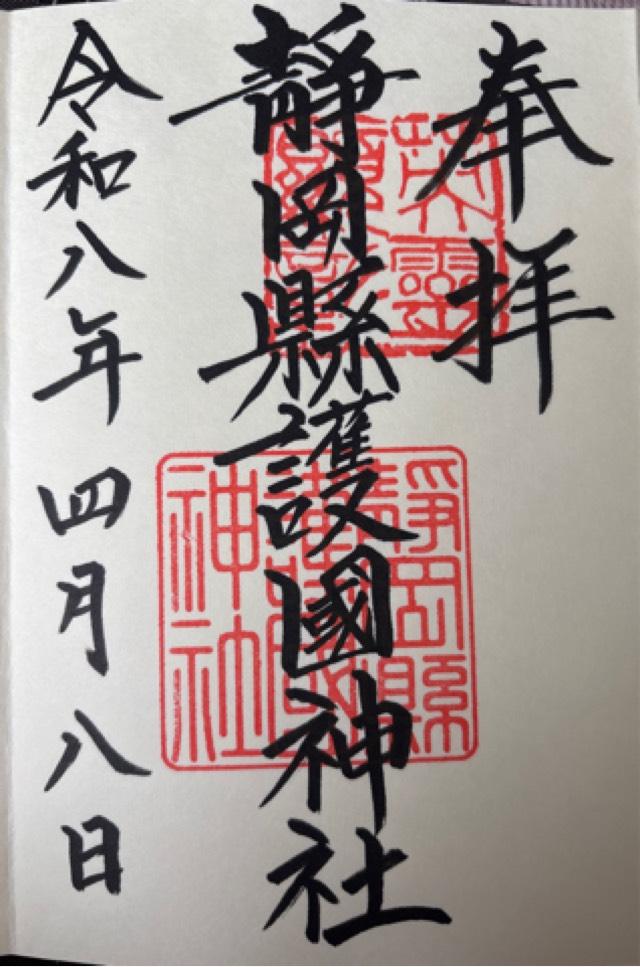 奉拝
靜岡縣護國神社
令和八年四月八日
英靈
靜岡縣
神社